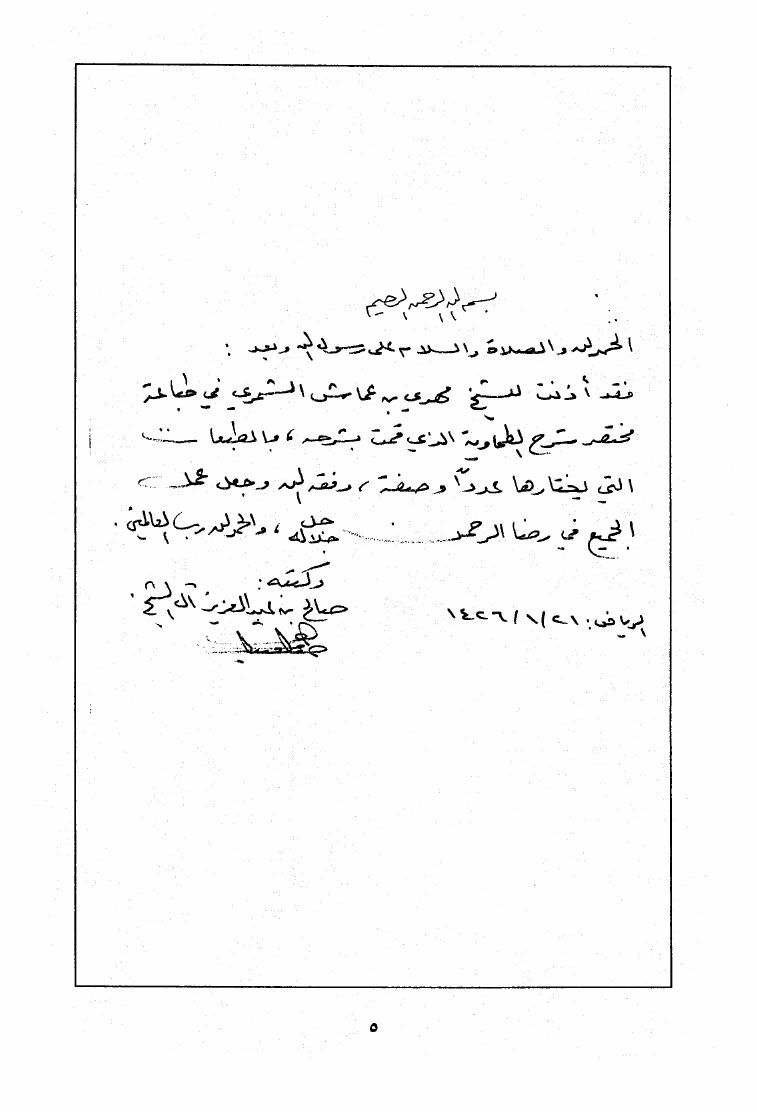 بسم الله الرحمن الرحيم
الحمد لله والصلاة والسلام على رسول الله وبعد :
فقد أذنت للشيخ مهدي بن عماش الشمري في طباعة
مختصر شرح الطحاوية الذي قمت بشرحه ، بالطبعات
التي يختارها عدداً وصفة ، وفقه الله وجعل عمل
الجميع في رضا الرحمن جل جلاله ، والحمد لله رب العالمين .
وكتبه :
صالح بن عبدالعزيز آل الشيخ .
الرياض : ١٤٢٦/١/٢١
٥